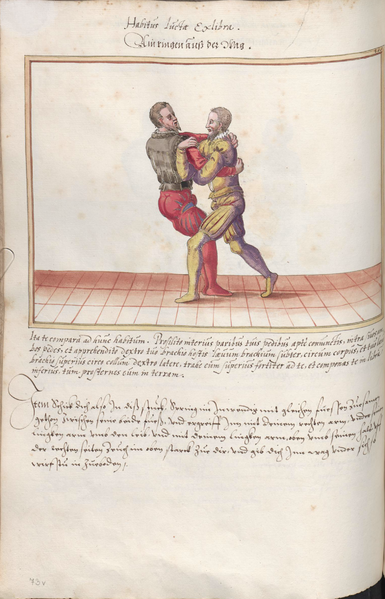 Habitus luctæ Ex libra.
Ain ringen auß der Wag.
Ita te compara ad hunc habitum. Prosilito interius paribus tuis pedibus aptè coniunctis, intra
bos pedes, et apprehendito dextro tuo brachio hostis lævum brachium subter, circum corpus, et tuo
brachio superius circa collum dextro latere, trahe eum superius fortiter ad te, et componas te in libra
inferius, sim prosternes eum in terram.
Item Schick dich also In diß stuck. Spring im Inwendig mit gleichen füessen
zwischen seine baide füeß, und ergreiff Im mit deinem rechten arm
lingken arm umb den leib und mit deinem lingken arm, oben umb seinen
der rechten seiten, zeuch in oben starck zu dir, und gib dich Inn wag under
wirfstu in zuboden.
73v